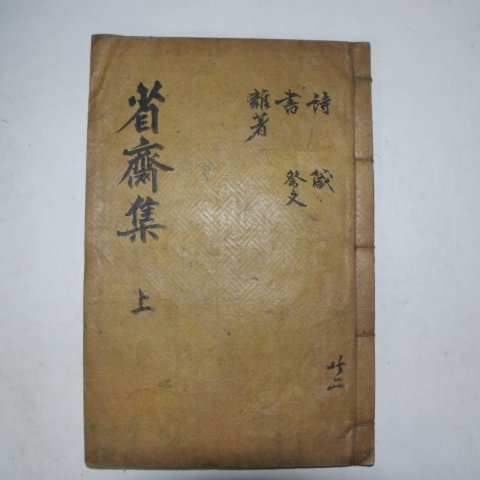 詩 箴
書 祭文
雜著
省齋集
上
共二